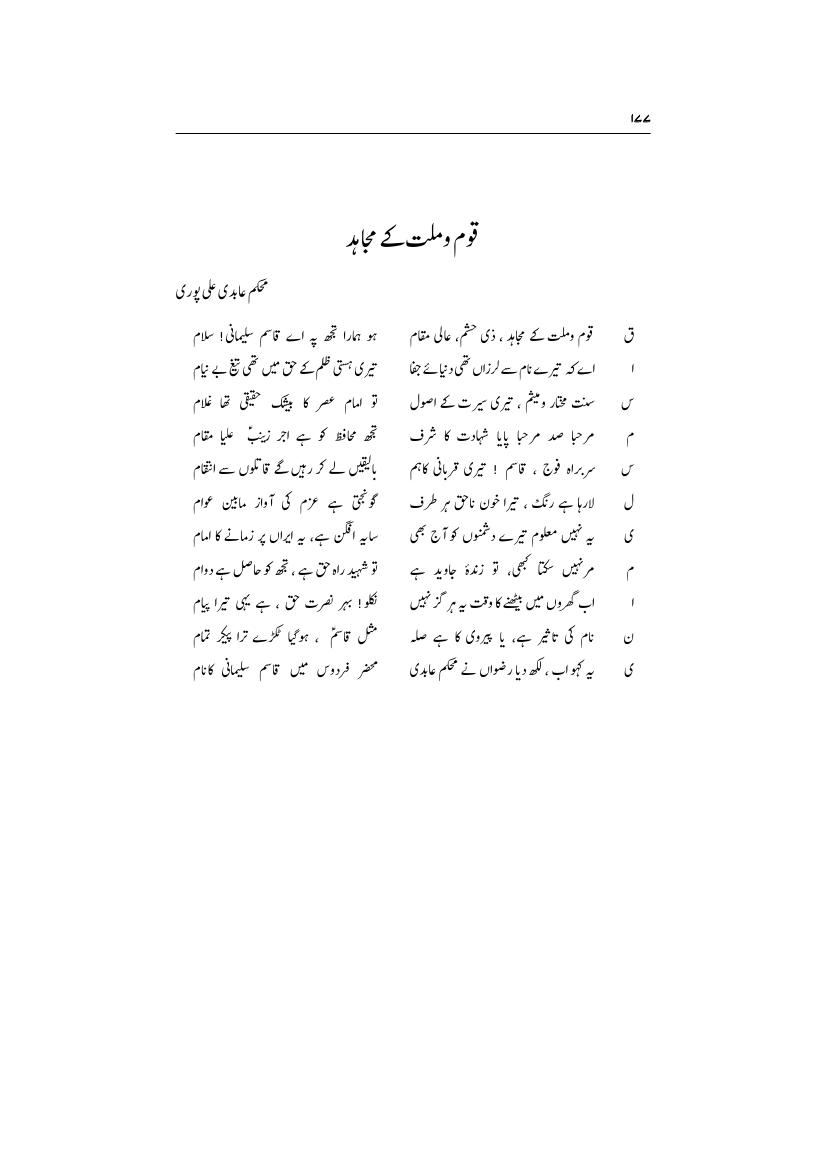 ۱۷۷
قوم وملت کے مجاہد
محکم عابدی علی پوری
ق قوم وملت کے مجاہد ، ذی حشم، عالی مقام ہو ہمارا تجھ پہ اے قاسم سلیمانی! سلام
ا اے کہ تیرے نام سے لرزاں تھی دنیائے جفا تیری ہستی ظلم کے حق میں تھی تیغ بے نیام
س سنت مختار ومیثم ، تیری سیرت کے اصول تو امام عصر کا بیشک حقیقی تھا غلام
م مرحبا صد مرحبا پایا شہادت کا شرف تجھ محافظ کو ہے اجر زینبؑ علیا مقام
س سربراہ فوج ، قاسم ! تیری قربانی کاہم بالیقیں لے کر رہیں گے قاتلوں سے انتقام
ل لارہا ہے رنگ ، تیرا خون ناحق ہر طرف گونجتی ہے عزم کی آواز مابین عوام
ی یہ نہیں معلوم تیرے دشمنوں کو آج بھی سایہ افگن ہے، یہ ایراں پر زمانے کا امام
م مرنہیں سکتا کبھی، تو زندۂ جاوید ہے تو شہید راہ حق ہے ، تجھ کو حاصل ہے دوام
ا اب گھروں میں بیٹھنے کا وقت یہ ہر گز نہیں نکلو! بہر نصرت حق ، ہے یہی تیرا پیام
ن نام کی تاثیر ہے، یا پیروی کا ہے صلہ مثل قاسمؑ ، ہوگیا ٹکڑے ترا پیکر تمام
ی یہ کہو اب ، لکھ دیا رضواں نے محکم عابدی محضر فردوس میں قاسم سلیمانی کانام